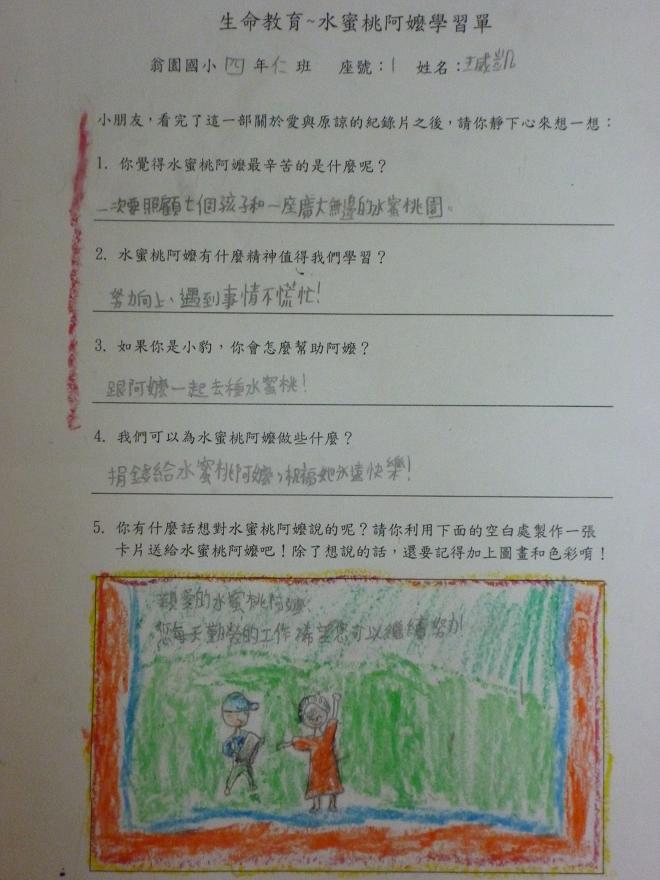 生命教育~水蜜桃阿嬤學習單
翁園國小 四 年 仁 班 座號：1 姓名：王威凱
小朋友，看完了這一部關於愛與原諒的紀錄片之後，請你靜下心來想一想：
1. 你覺得水蜜桃阿嬤最辛苦的是什麼呢？
一次要照顧七個孩子和一座廣大無邊的水蜜桃園。
2. 水蜜桃阿嬤有什麼精神值得我們學習？
努力向上、遇到事情不慌忙！
3. 如果你是小豹，你會怎麼幫助阿嬤？
跟阿嬤一起去種水蜜桃！
4. 我們可以為水蜜桃阿嬤做些什麼？
捐錢給水蜜桃阿嬤，祝福她永遠快樂！
5. 你有什麼話想對水蜜桃阿嬤說的呢？請你利用下面的空白處製作一張
卡片送給水蜜桃阿嬤吧！除了想說的話，還要記得加上圖畫和色彩唷！
親愛的水蜜桃阿嬤：
您每天勤勞的工作希望您可以繼續努力